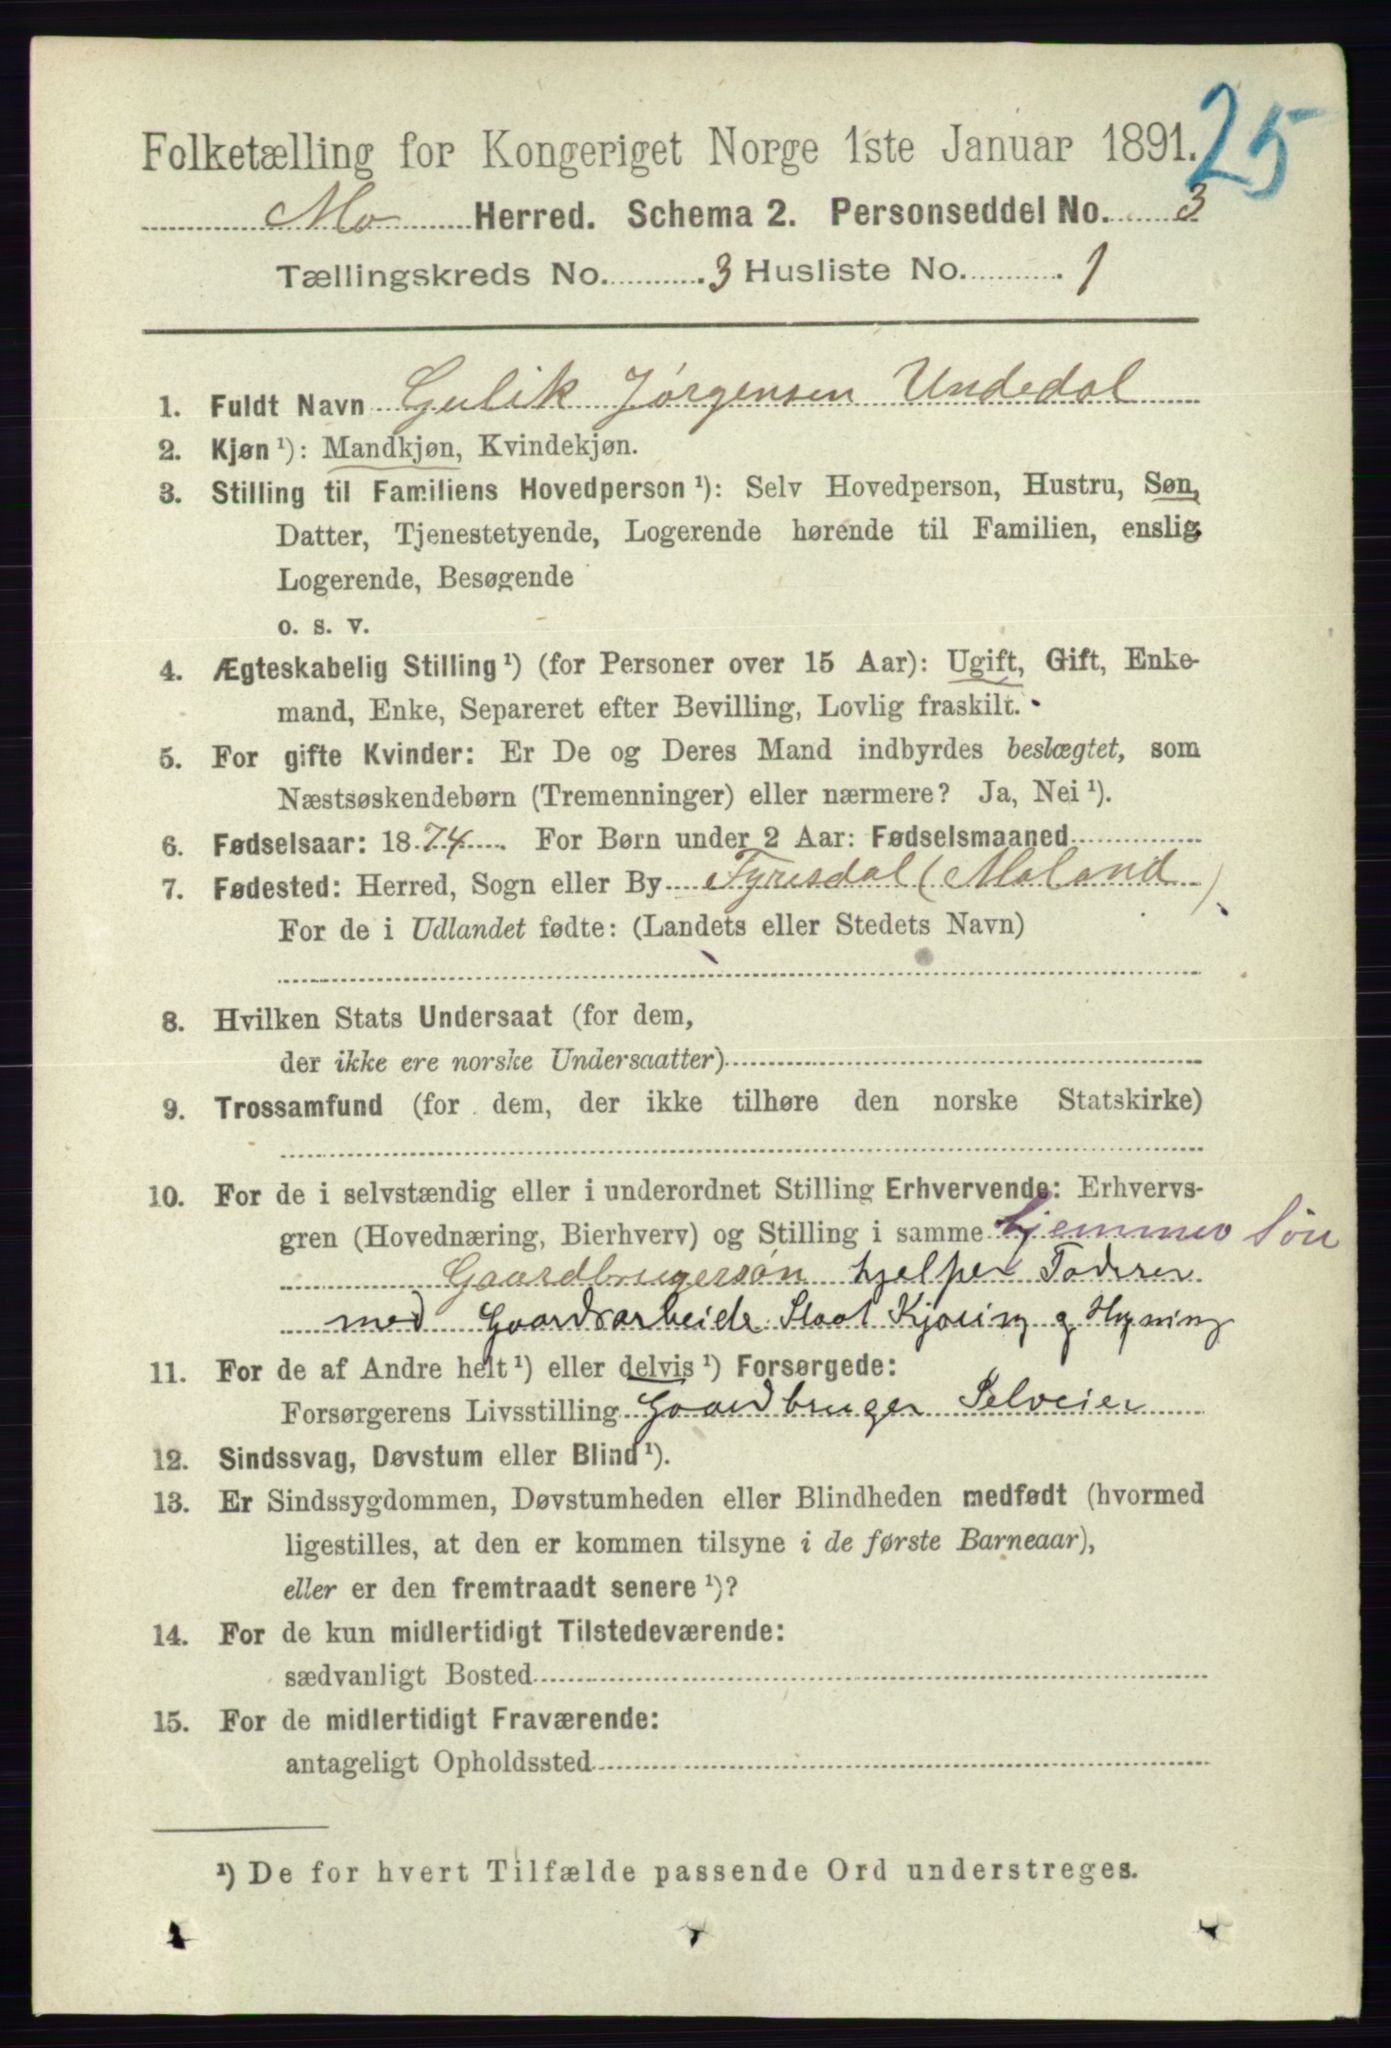 25
Folketælling for Kongeriget Norge 1ste Januar 1891.
Mo Herred. Schema 2. Personseddel No. 3
Tællingskreds No. 3 Husliste No. 1
1. Fuldt Navn Gulik Jørgensen Undedal
2. Kjøn ¹): Mandkjøn, Kvindekjøn.
3. Stilling til Familiens Hovedperson ¹): Selv Hovedperson, Hustru, Søn,
Datter, Tjenestetyende, Logerende hørende til Familien, enslig
Logerende, Besøgende
o. s. v.
4. Ægteskabelig Stilling ¹) (for Personer over 15 Aar): Ugift, Gift, Enke-
mand, Enke, Separeret efter Bevilling, Lovlig fraskilt.
5. For gifte Kvinder: Er De og Deres Mand indbyrdes beslægtet, som
Næstsøskendebørn (Tremenninger) eller nærmere? Ja, Nei ¹).
6. Fødselsaar: 1874. For Børn under 2 Aar: Fødselsmaaned
7. Fødested: Herred, Sogn eller By Tyrisdal (Moland)
For de i Udlandet fødte: (Landets eller Stedets Navn)
8. Hvilken Stats Undersaat (for dem,
der ikke ere norske Undersaatter)
9. Trossamfund (for dem, der ikke tilhøre den norske Statskirke)
10. For de i selvstændig eller i underordnet Stilling Erhvervende: Erhvervs-
gren (Hovednæring, Bierhverv) og Stilling i samme hjemmev Søn
Gaardbrugersøn hjelper Faderen
med Gaardsarbeide Slaat Kjøring og Hogning
11. For de af Andre helt ¹) eller delvis ¹) Forsørgede:
Forsørgerens Livsstilling Gaardbruger Selveier
12. Sindssvag, Døvstum eller Blind ¹).
13. Er Sindssygdommen, Døvstumheden eller Blindheden medfødt (hvormed
ligestilles, at den er kommen tilsyne i de første Barneaar),
eller er den fremtraadt senere ¹)?
14. For de kun midlertidigt Tilstedeværende:
sædvanligt Bosted
15. For de midlertidigt Fraværende:
antageligt Opholdssted
¹) De for hvert Tilfælde passende Ord understreges.